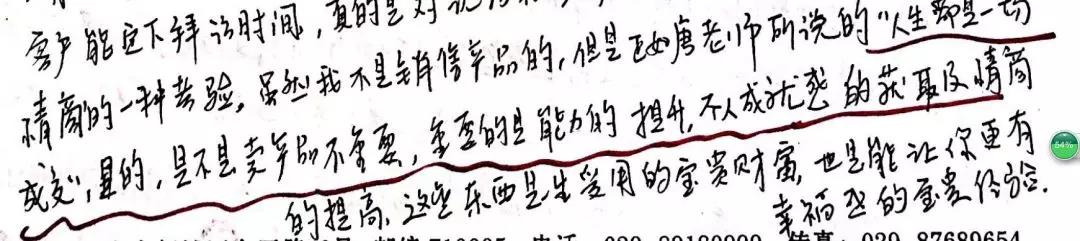 客户能定下拜访时间,真的是对
情商的一种考验。虽然我不是销售产品的,但是正如唐老师所说的“人生都是一场
成交”,是的,是不是卖产品不重要,重要的是能力的提升,个人成就感的获取及情商
的提高,这些东西是一生受用的宝贵财富,也是能让你更有
幸福感的重要经验.
54%
邮编 710005 电话 传真: 029-87689654